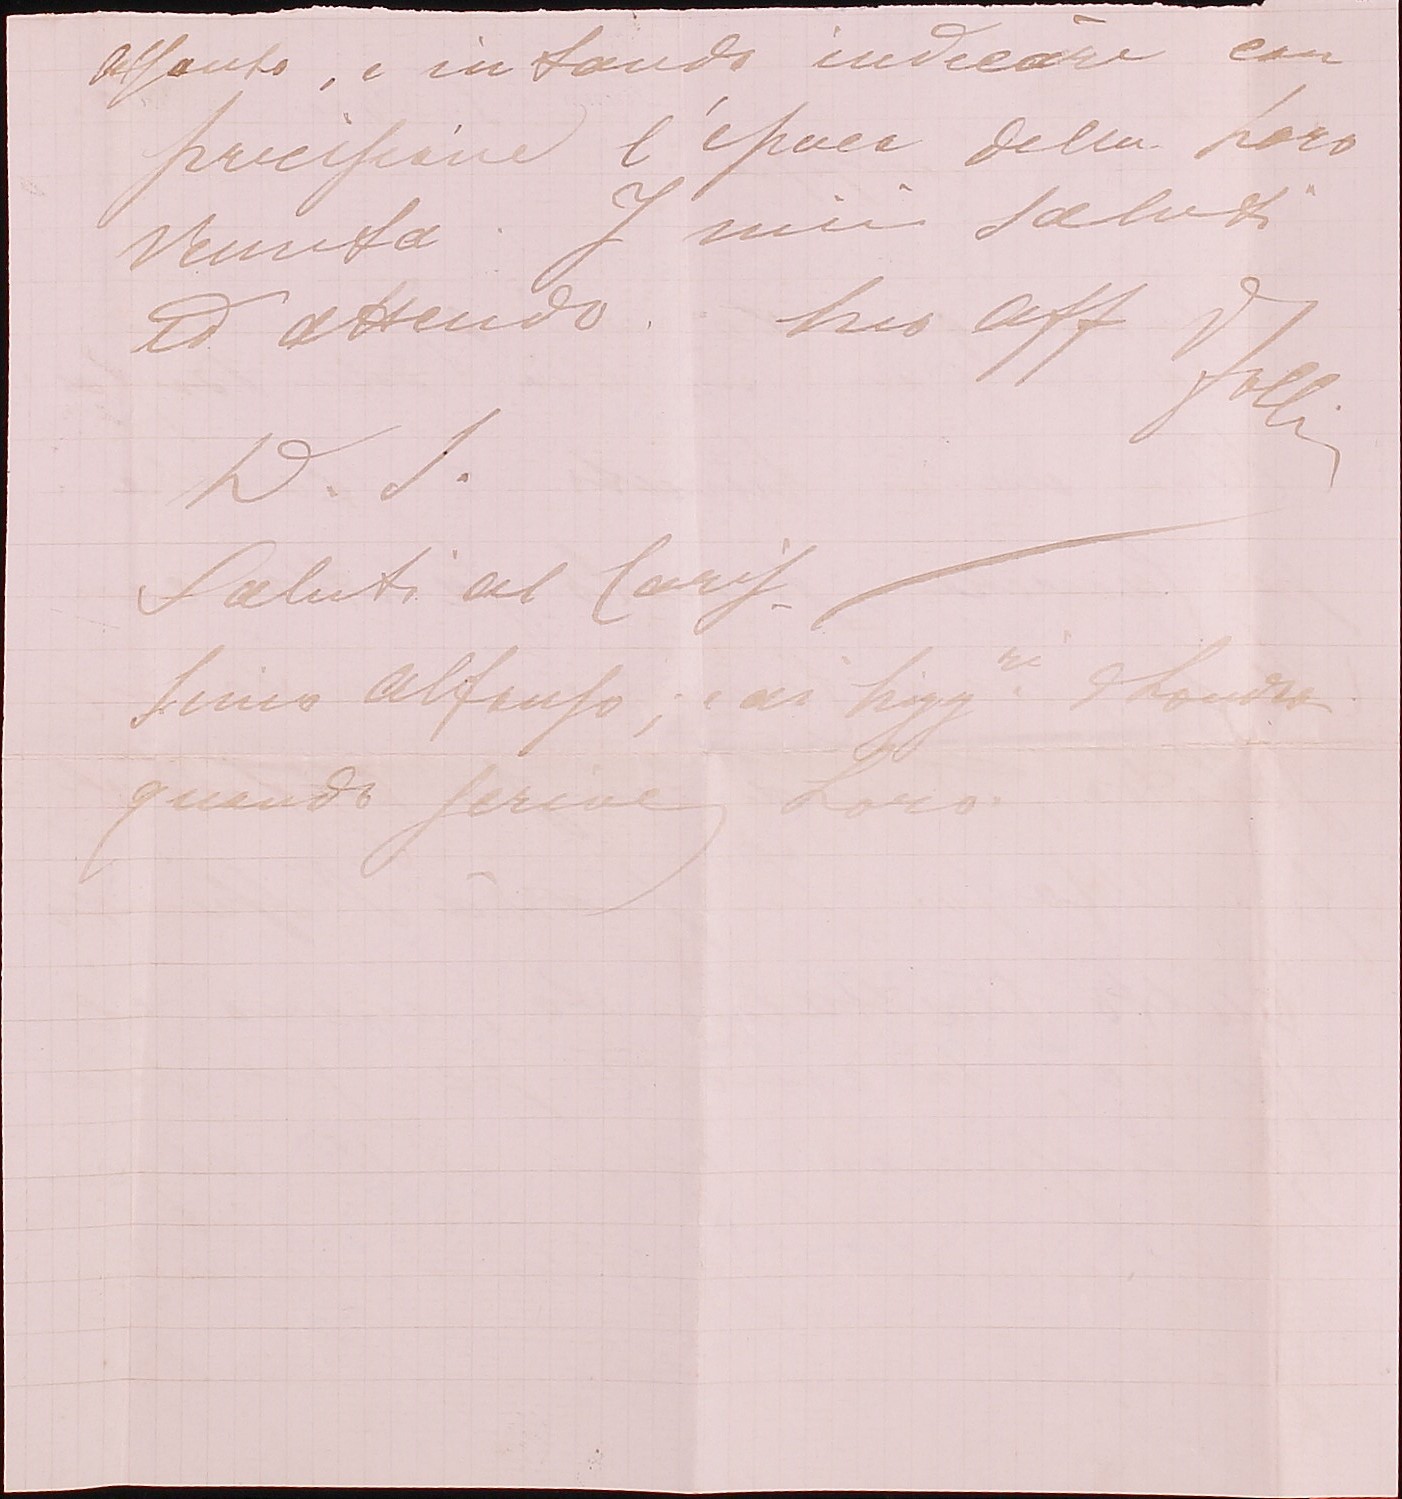 assunto, e intando indicare con
precisione l'epoca della Loro
venuta. I miei saluti
ed attendo. Suo aff
Folli
P. S.
Saluti al Caris-
simo Alfonso, e ai Sigg.ri di Londra
quando scrive Loro.